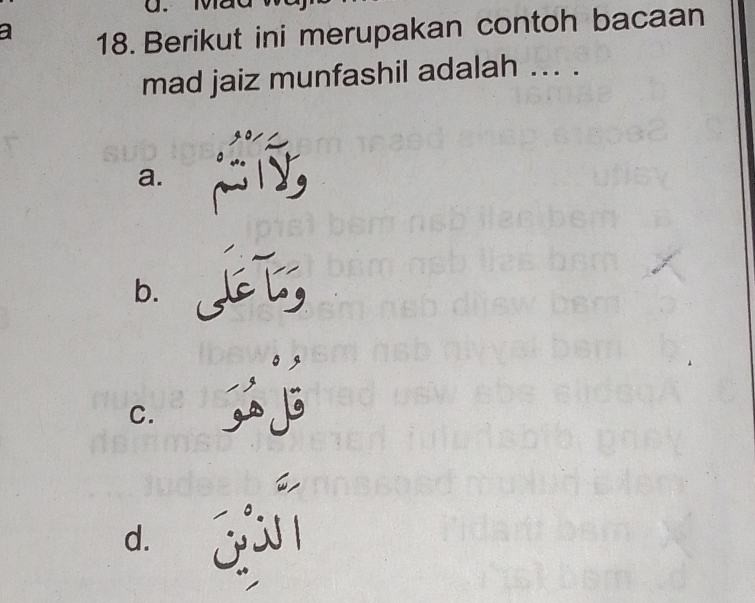 18. Berikut ini merupakan contoh bacaan
mad jaiz munfashil adalah ... .
a. وَلَآ اَنْتُمْ
b. وَمَآ عَلَى
c. قُلْ هُوَ
d. اَلَّذِيْنَ